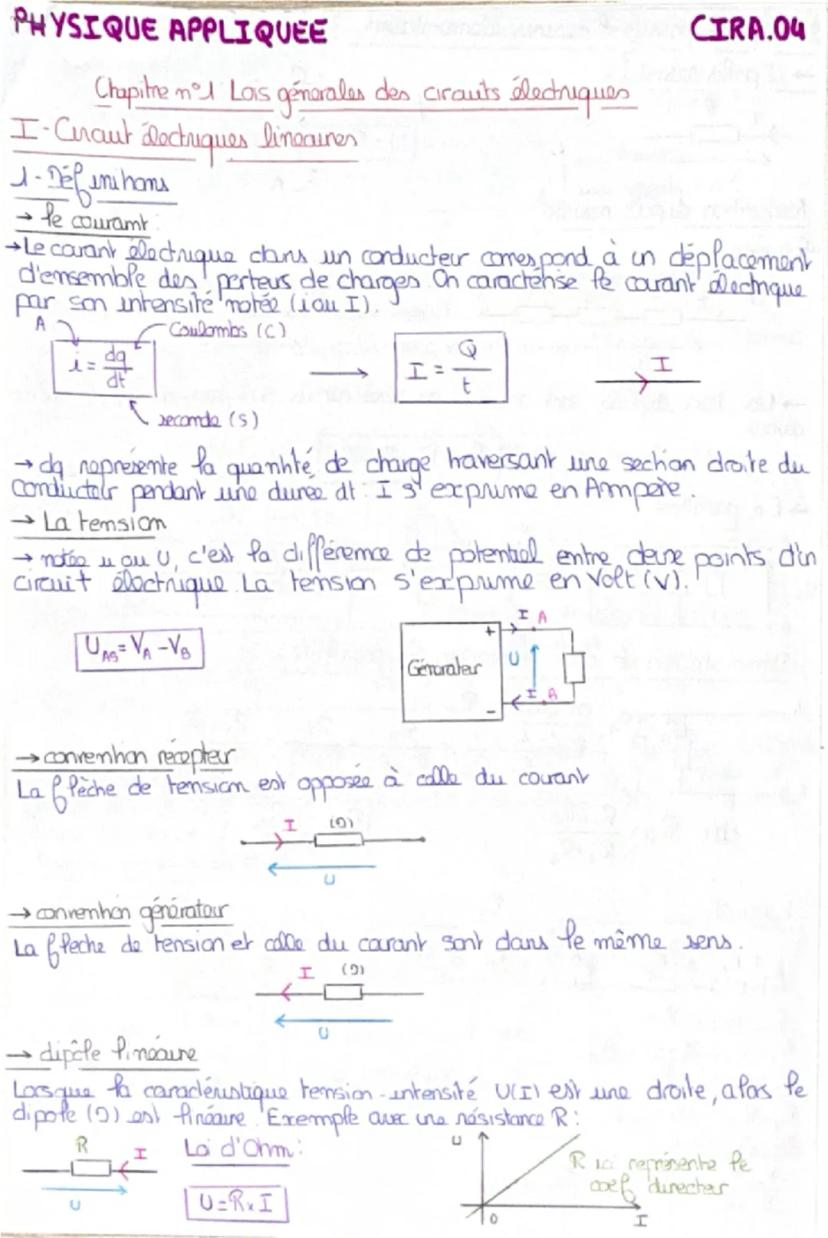 PHYSIQUE APPLIQUEE CIRA.04
Chapitre n°1 Lois générales des circuits électriques
I - Circuit électriques linéaires
1 - Définitions
→ le courant :
→ Le courant électrique dans un conducteur correspond à un déplacement
d'ensemble des porteurs de charges On caractérise le courant électrique
par son intensité notée (i ou I).
A Coulombs (C)
i = dq/dt → I = Q/t I
seconde (s)
→ dq représente la quantité de charge traversant une section droite du
conducteur pendant une durée dt. I s'exprume en Ampère
→ La tension
→ notée u ou U, c'est la différence de potentiel entre deux points d'un
circuit électrique. La tension s'exprume en Volt (V).
U_AB = V_A - V_B
+ I A
Générateur U
- I A
→ convention récepteur
La flèche de tension est opposée à celle du courant
I (D)
U
→ convention générateur
La flèche de tension et celle du courant sont dans le même sens.
I (D)
U
→ dipôle linéaire
Lorsque la caractéristique tension-intensité U(I) est une droite, alors le
dipole (D) est linéaire. Exemple avec une résistance R :
R I Loi d'Ohm :
U
U = R x I
U
R ici représente le
coef directeur
0 I